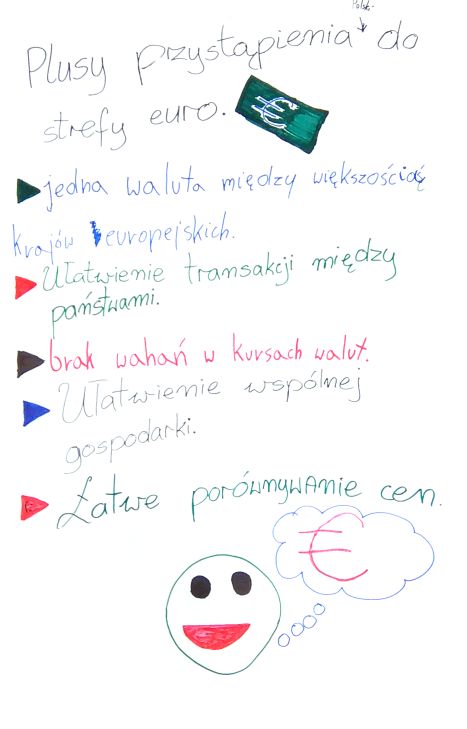 Polski
Plusy przystąpienia do
strefy euro. €
jedna waluta między większością
krajów europejskich.
Ułatwienie transakcji między
państwami.
brak wahań w kursach walut.
Ułatwienie wspólnej
gospodarki.
Łatwe porównywanie cen.
€